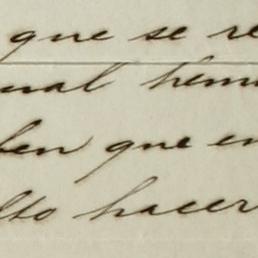 que se re
ual hem
ben que en
lto hacer